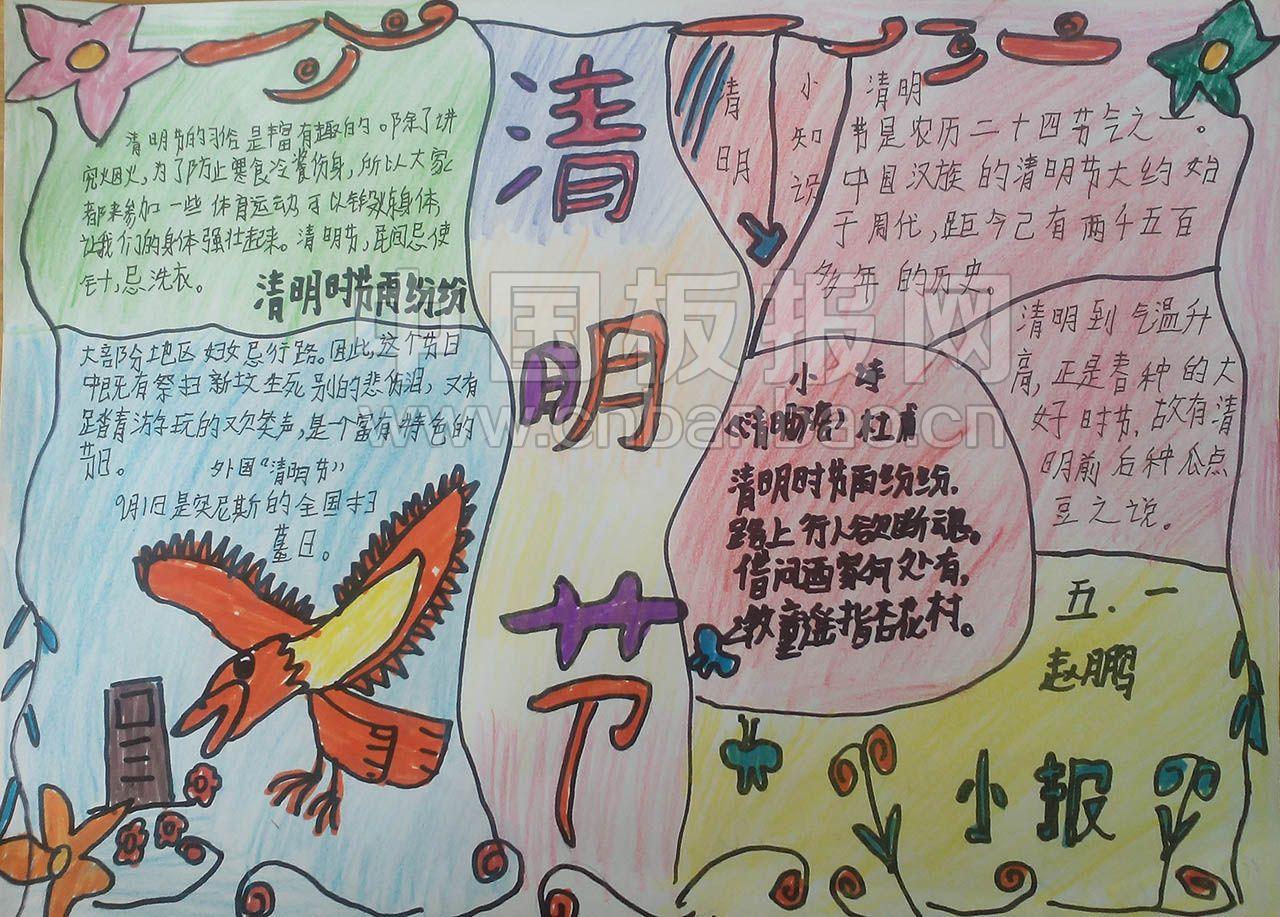 清明节的习俗是丰富有趣的。除了讲
究烟火,为了防止寒食冷餐伤身,所以大家
都来参加一些体育运动可以锻炼身体,
让我们的身体强壮起来。清明节,民间忌使
针,忌洗衣。
清明时节雨纷纷
大部分地区妇女忌行路。因此,这个节日
中既有祭扫新坟生死别的悲伤泪,又有
踏青游玩的欢笑声,是一个富有特色的
节日。
外国“清明节”
9月1日是突尼斯的全国扫
墓日。
清明节
清明
小知识
清明
节是农历二十四节气之一。
中国汉族的清明节大约始
于周代,距今已有两千五百
多年的历史。
清明到气温升
高,正是春种的大
好时节,故有清
明前后种瓜点
豆之说。
小诗
杜甫
清明时节雨纷纷,
路上行人欲断魂。
借问酒家何处有,
牧童遥指杏花村。
五.一
赵鹏
小报
中国板报网
www.cnbanbao.cn